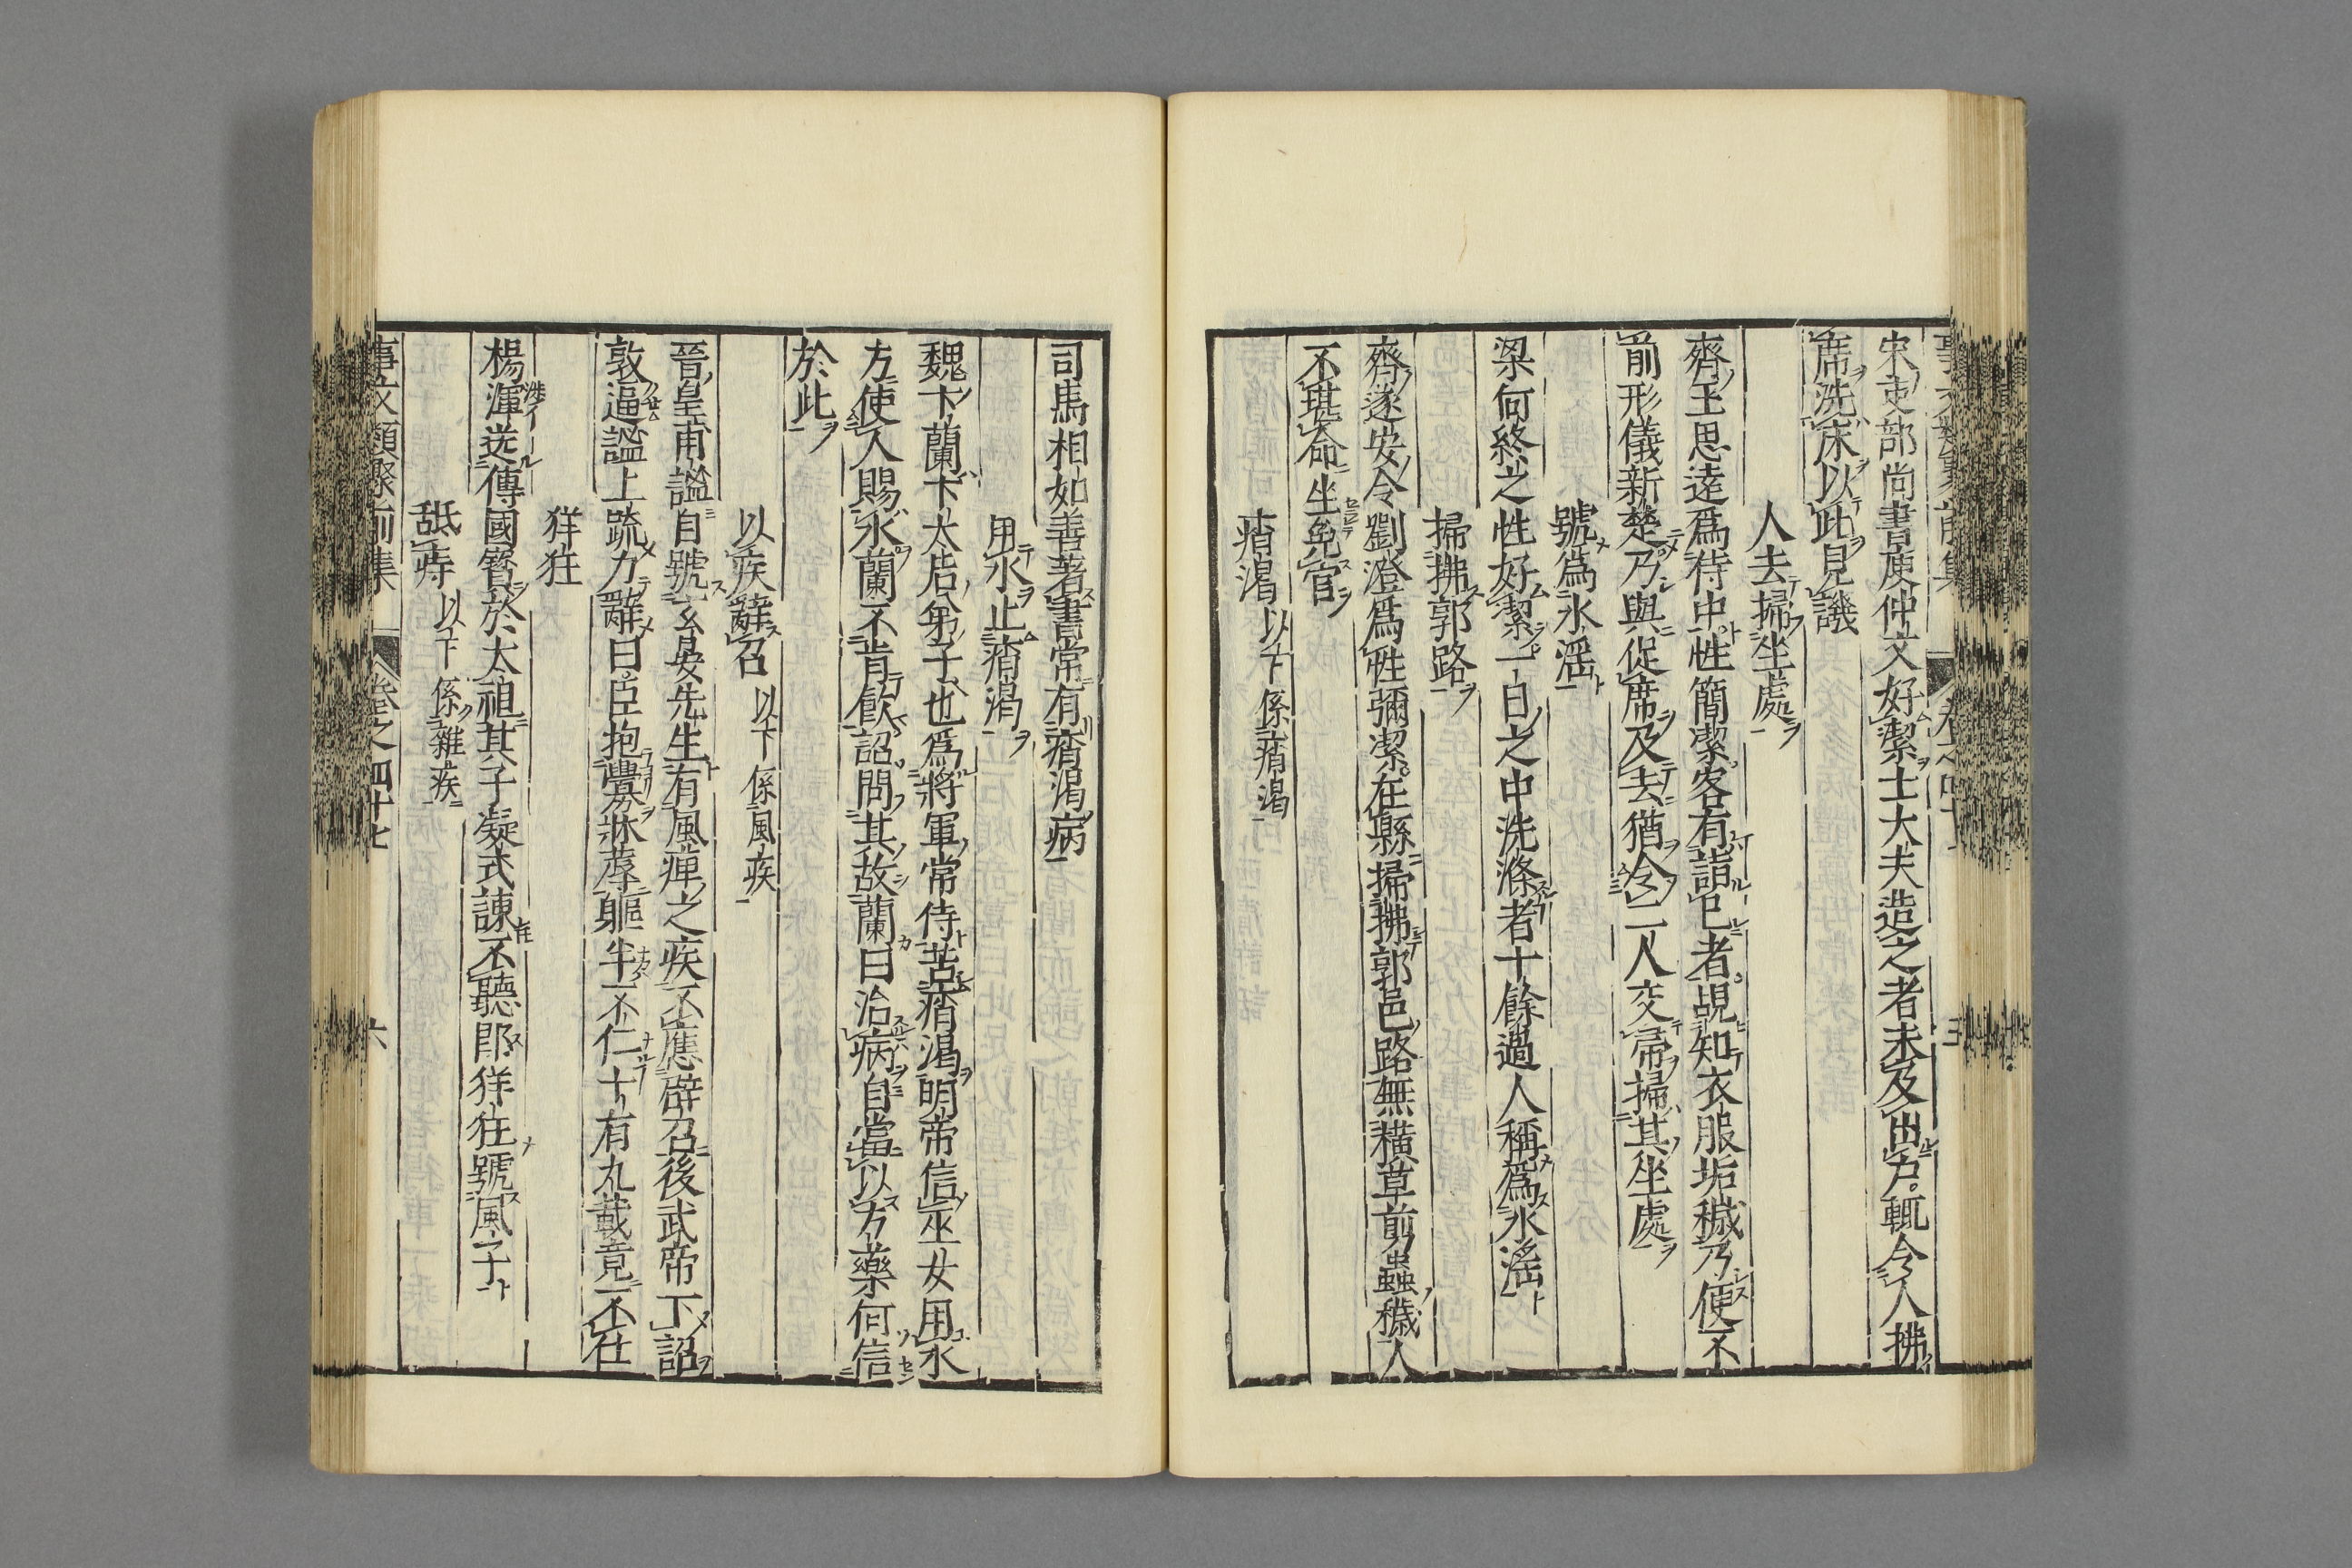 宋吏部尚書庾仲文好潔士大夫造之者未及出戶輒令人拂
席洗床以此見譏
人去掃坐處
齊王思逺爲侍中性簡潔客有詣巳者覘知衣服垢穢乃便不
前形儀新楚乃與促席及去猶令二人交帚掃其坐處
號爲水淫
梁何終之性好潔一日之中洗滌者十餘過人稱爲水滛
掃拂郭路
齊遂安令劉澄爲性彌潔在縣掃拂郭邑路無横草剪蟲穢人
不堪命坐免官
痟渴 以下係痟渴
司馬相如善著書常有痟渴病
用水止痟渴
魏卞蘭卞太后弟子也爲將軍常侍苦痟渴明帝信巫女用水
方使人賜水蘭不肯飲詔問其故蘭曰治病自當以方藥何信
於此
以疾辭召 以下係風疾
晉皇甫謐自號玄晏先生有風痺之疾不應辟召後武帝下詔
敦逼謐上疏力辭曰臣抱釁嬰牀蓐軀半不仁十有九載竟不仕
佯狂
楊渾送傳國寳於太祖其子凝式諌不聽即佯狂號風子
舐痔 以下係雜疾
事文類聚前集 卷之四十七 六